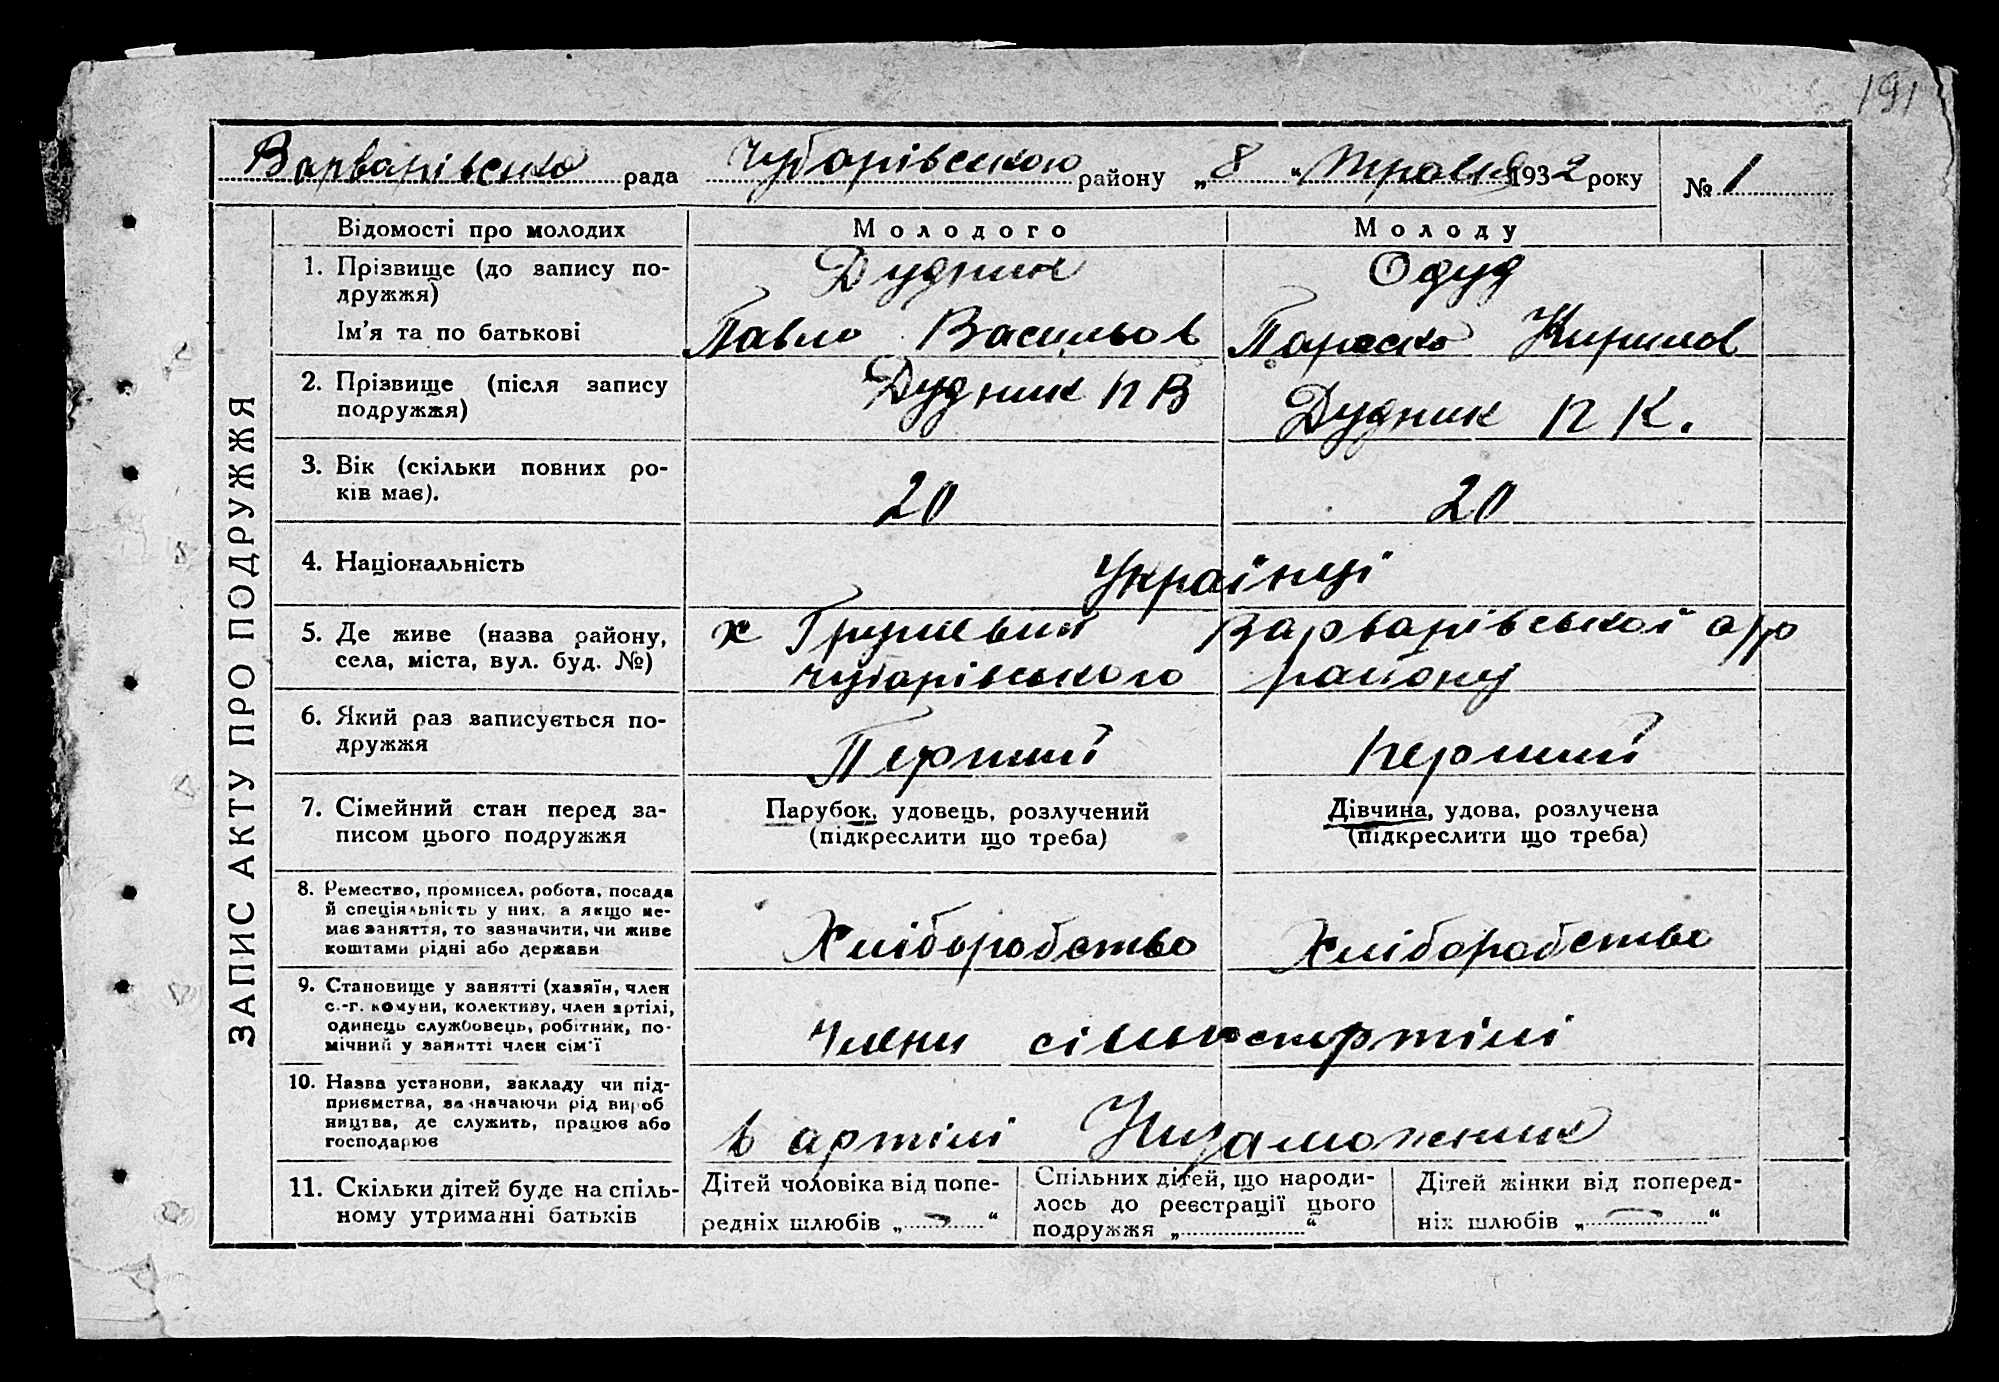 191
Варварівська рада Чубарівського району „8“ Травня 1932 року № 1
ЗАПИС АКТУ ПРО ПОДРУЖЖЯ
Відомості про молодих Молодого Молоду
1. Прізвище (до запису по- Дудник Одуд
дружжя)
Ім'я та по батькові Павло Васильов Параска Кирилов
2. Прізвище (після запису Дудник П В Дудник П К.
подружжя)
3. Вік (скільки повних ро-
ків має). 20 20
4. Національність Українці
5. Де живе (назва району, х Грушевий Варварівської с/р
села, міста, вул. буд. №) Чубарівського району
6. Який раз записується по-
дружжя Перший Перший
7. Сімейний стан перед за- Парубок, удовець, розлучений Дівчина, удова, розлучена
писом цього подружжя (підкреслити що треба) (підкреслити що треба)
8. Ремество, промисел, робота, посада
й спеціяльність у них, а якщо не-
має заняття, то зазначити, чи живе Хліборобство Хліборобство
коштами рідні або держави
9. Становище у занятті (хазяїн, член
с.-г. комуни, колективу, член артілі,
одинець службовець, робітник, по- Члени
мічний у занятті член сім'ї
10. Назва установи, закладу чи під-
приємства, зазначаючи рід вироб
ництва, де служить, працює або в артілі Незаможник
господарює
11. Скільки дітей буде на спіль- Дітей чоловіка від попе- Спільних дітей, що народи- Дітей жінки від поперед-
ному утриманні батьків редніх шлюбів „ — “ лось до реєстрації цього ніх шлюбів „ — “
подружжя „ “